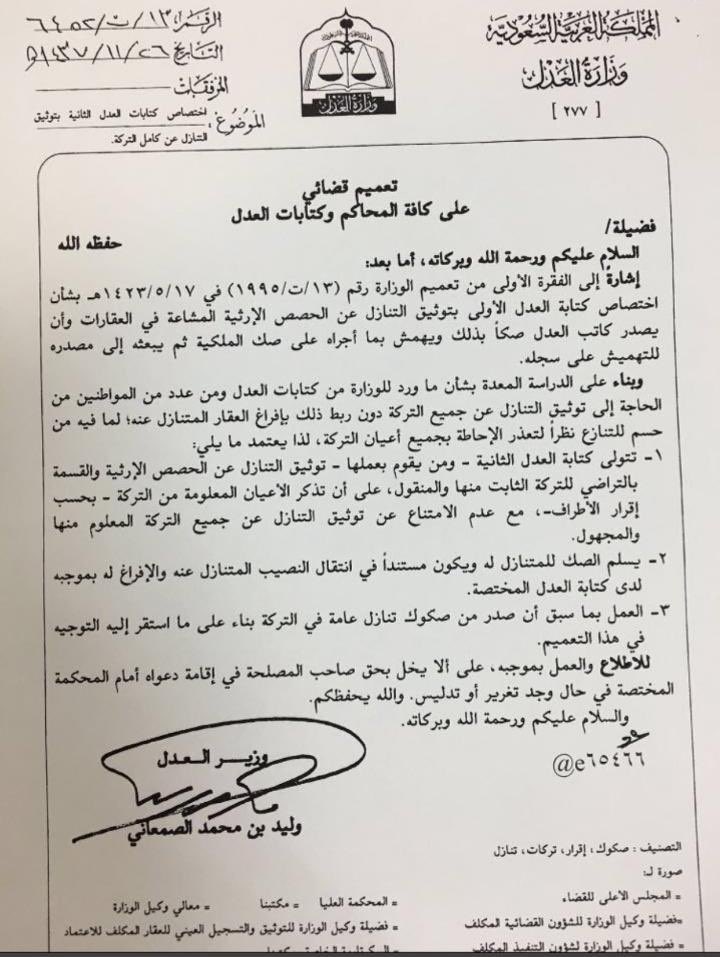 المملكة العربية السعودية
وزارة العدل
[ ٢٧٧ ]
وزارة العدل
الرقم: ١٣/ت/٦٤٥٢
التاريخ ١٤٣٧/١١/٢٦هـ
المرفقات
الموضوع: اختصاص كتابات العدل الثانية بتوثيق
التنازل عن كامل التركة.
تعميم قضائي
على كافة المحاكم وكتابات العدل
فضيلة/
حفظه الله
السلام عليكم ورحمة الله وبركاته، أما بعد:
إشارةً إلى الفقرة الأولى من تعميم الوزارة رقم (١٣/ت/١٩٩٥) في ١٤٢٣/٥/١٧هـ بشأن
اختصاص كتابة العدل الأولى بتوثيق التنازل عن الحصص الإرثية المشاعة في العقارات وأن
يصدر كاتب العدل صكاً بذلك ويهمش بما أجراه على صك الملكية ثم يبعثه إلى مصدره
للتهميش على سجله.
وبناء على الدراسة المعدة بشأن ما ورد للوزارة من كتابات العدل ومن عدد من المواطنين من
الحاجة إلى توثيق التنازل عن جميع التركة دون ربط ذلك بإفراغ العقار المتنازل عنه؛ لما فيه من
حسم للتنازع نظراً لتعذر الإحاطة بجميع أعيان التركة، لذا يعتمد ما يلي:
١- تتولى كتابة العدل الثانية - ومن يقوم بعملها - توثيق التنازل عن الحصص الإرثية والقسمة
بالتراضي للتركة الثابت منها والمنقول، على أن تذكر الأعيان المعلومة من التركة - بحسب
إقرار الأطراف-، مع عدم الامتناع عن توثيق التنازل عن جميع التركة المعلوم منها
والمجهول.
٢- يسلم الصك للمتنازل له ويكون مستنداً في انتقال النصيب المتنازل عنه والإفراغ له بموجبه
لدى كتابة العدل المختصة.
٣- العمل بما سبق أن صدر من صكوك تنازل عامة في التركة بناء على ما استقر إليه التوجيه
في هذا التعميم.
للاطلاع والعمل بموجبه، على ألا يخل بحق صاحب المصلحة في إقامة دعواه أمام المحكمة
المختصة في حال وجد تغرير أو تدليس. والله يحفظكم.
والسلام عليكم ورحمة الله وبركاته.
@e٦٥٤٦٦
وزير العدل
وليد بن محمد الصمعاني
التصنيف: صكوك، إقرار، تركات، تنازل
صورة لـ:
= المجلس الأعلى للقضاء = المحكمة العليا = مكتبنا = معالي وكيل الوزارة
=فضيلة وكيل الوزارة للشؤون القضائية المكلف = فضيلة وكيل الوزارة للتوثيق والتسجيل العيني للعقار المكلف للاعتماد
= فضيلة وكيل الوزارة لشؤون التنفيذ المكلف